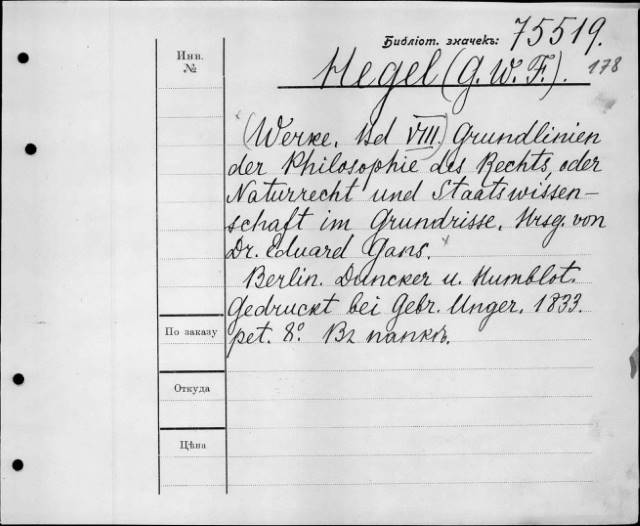 Библіот. значекъ: 75519.
Инв.
№
Hegel (G. W. F.). 178
(Werke. Bd VIII.) Grundlinien
der Philosophie des Rechts, oder
Naturrecht und Staatswissen-
schaft im Grundrisse. Hrsg. von
Dr. Eduard Gans.
Berlin. Duncker u. Humblot.
Gedruckt bei Gebr. Unger. 1833.
По заказу
pet. 8º. Въ папкѣ.
Откуда
Цѣна